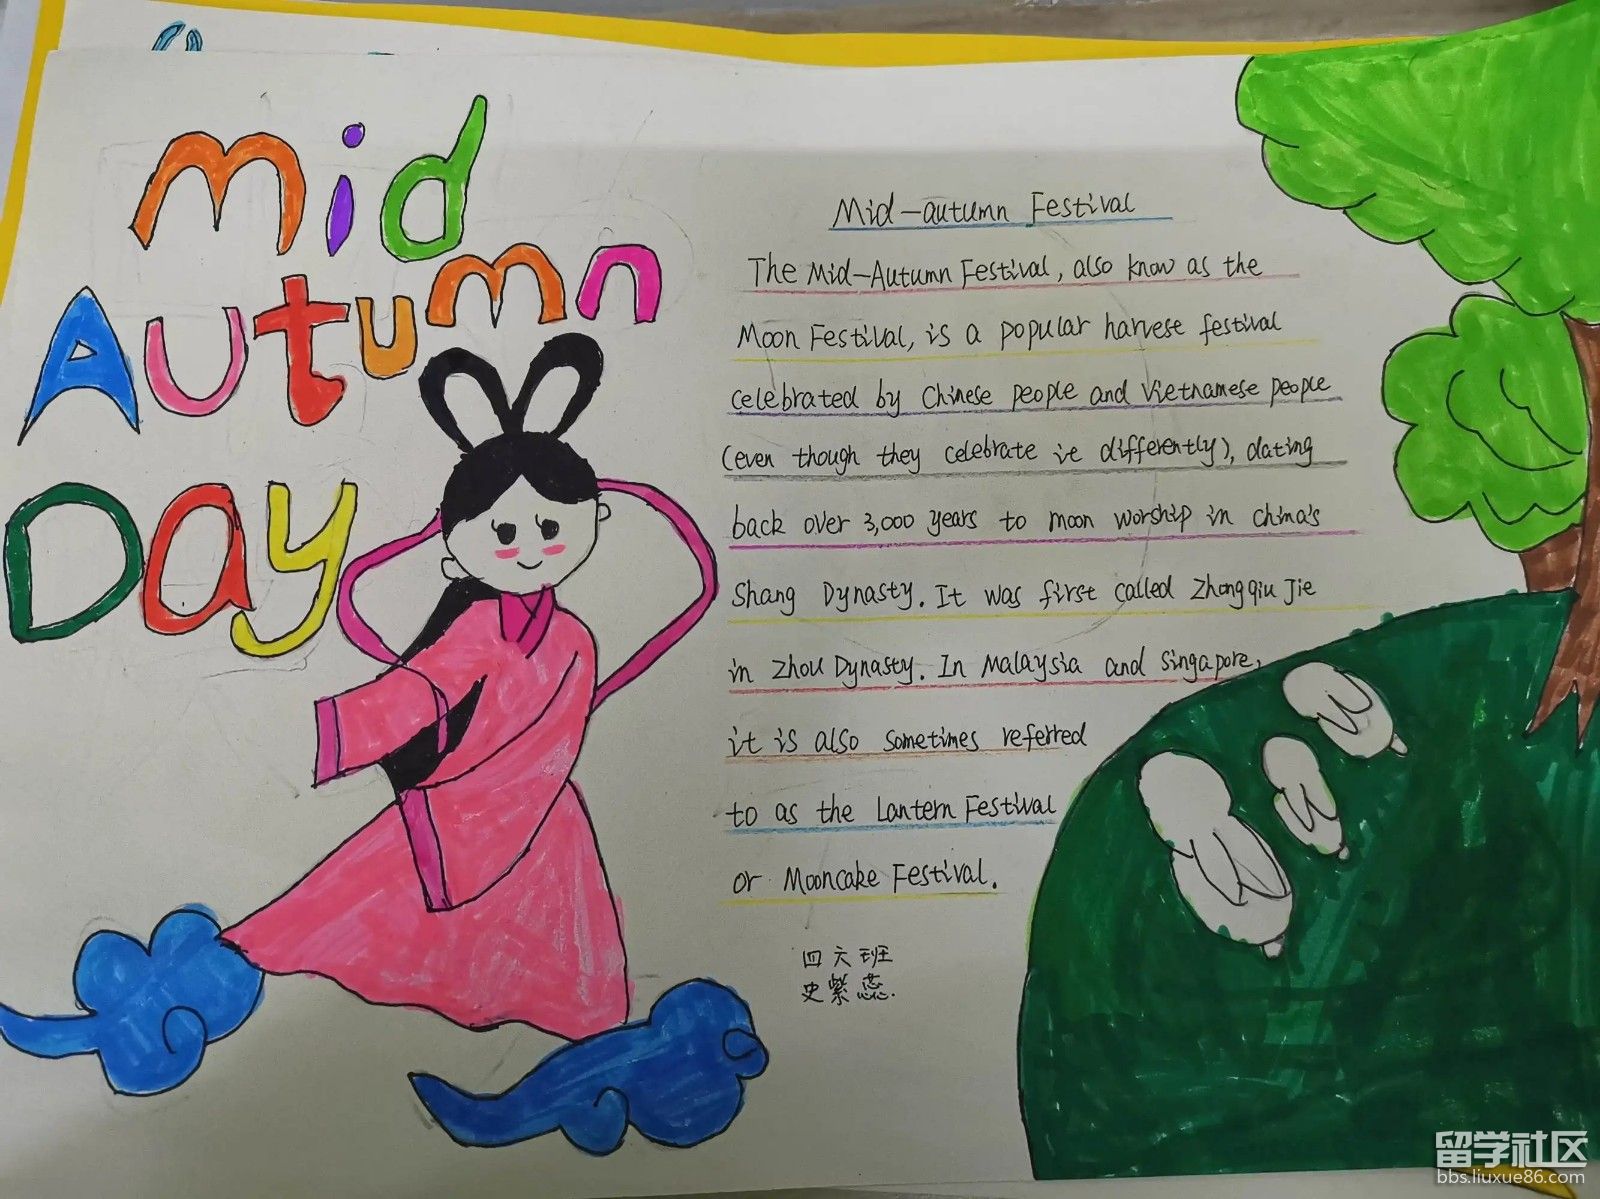 Mid
Autumn
Day
Mid-autumn Festival
The Mid-Autumn Festival, also know as the
Moon Festival, is a popular harvese festival
celebrated by Chinese people and Vietnamese people
(even though they celebrate ie differently), dating
back over 3,000 years to moon worship in china's
Shang Dynasty. It was first called Zhongqiu Jie
in Zhou Dynasty. In Malaysia and Singapore,
it is also sometimes referred
to as the Lantern Festival
or Mooncake Festival.
四六班
史紫蕊.
留学社区
bbs.liuxue86.com